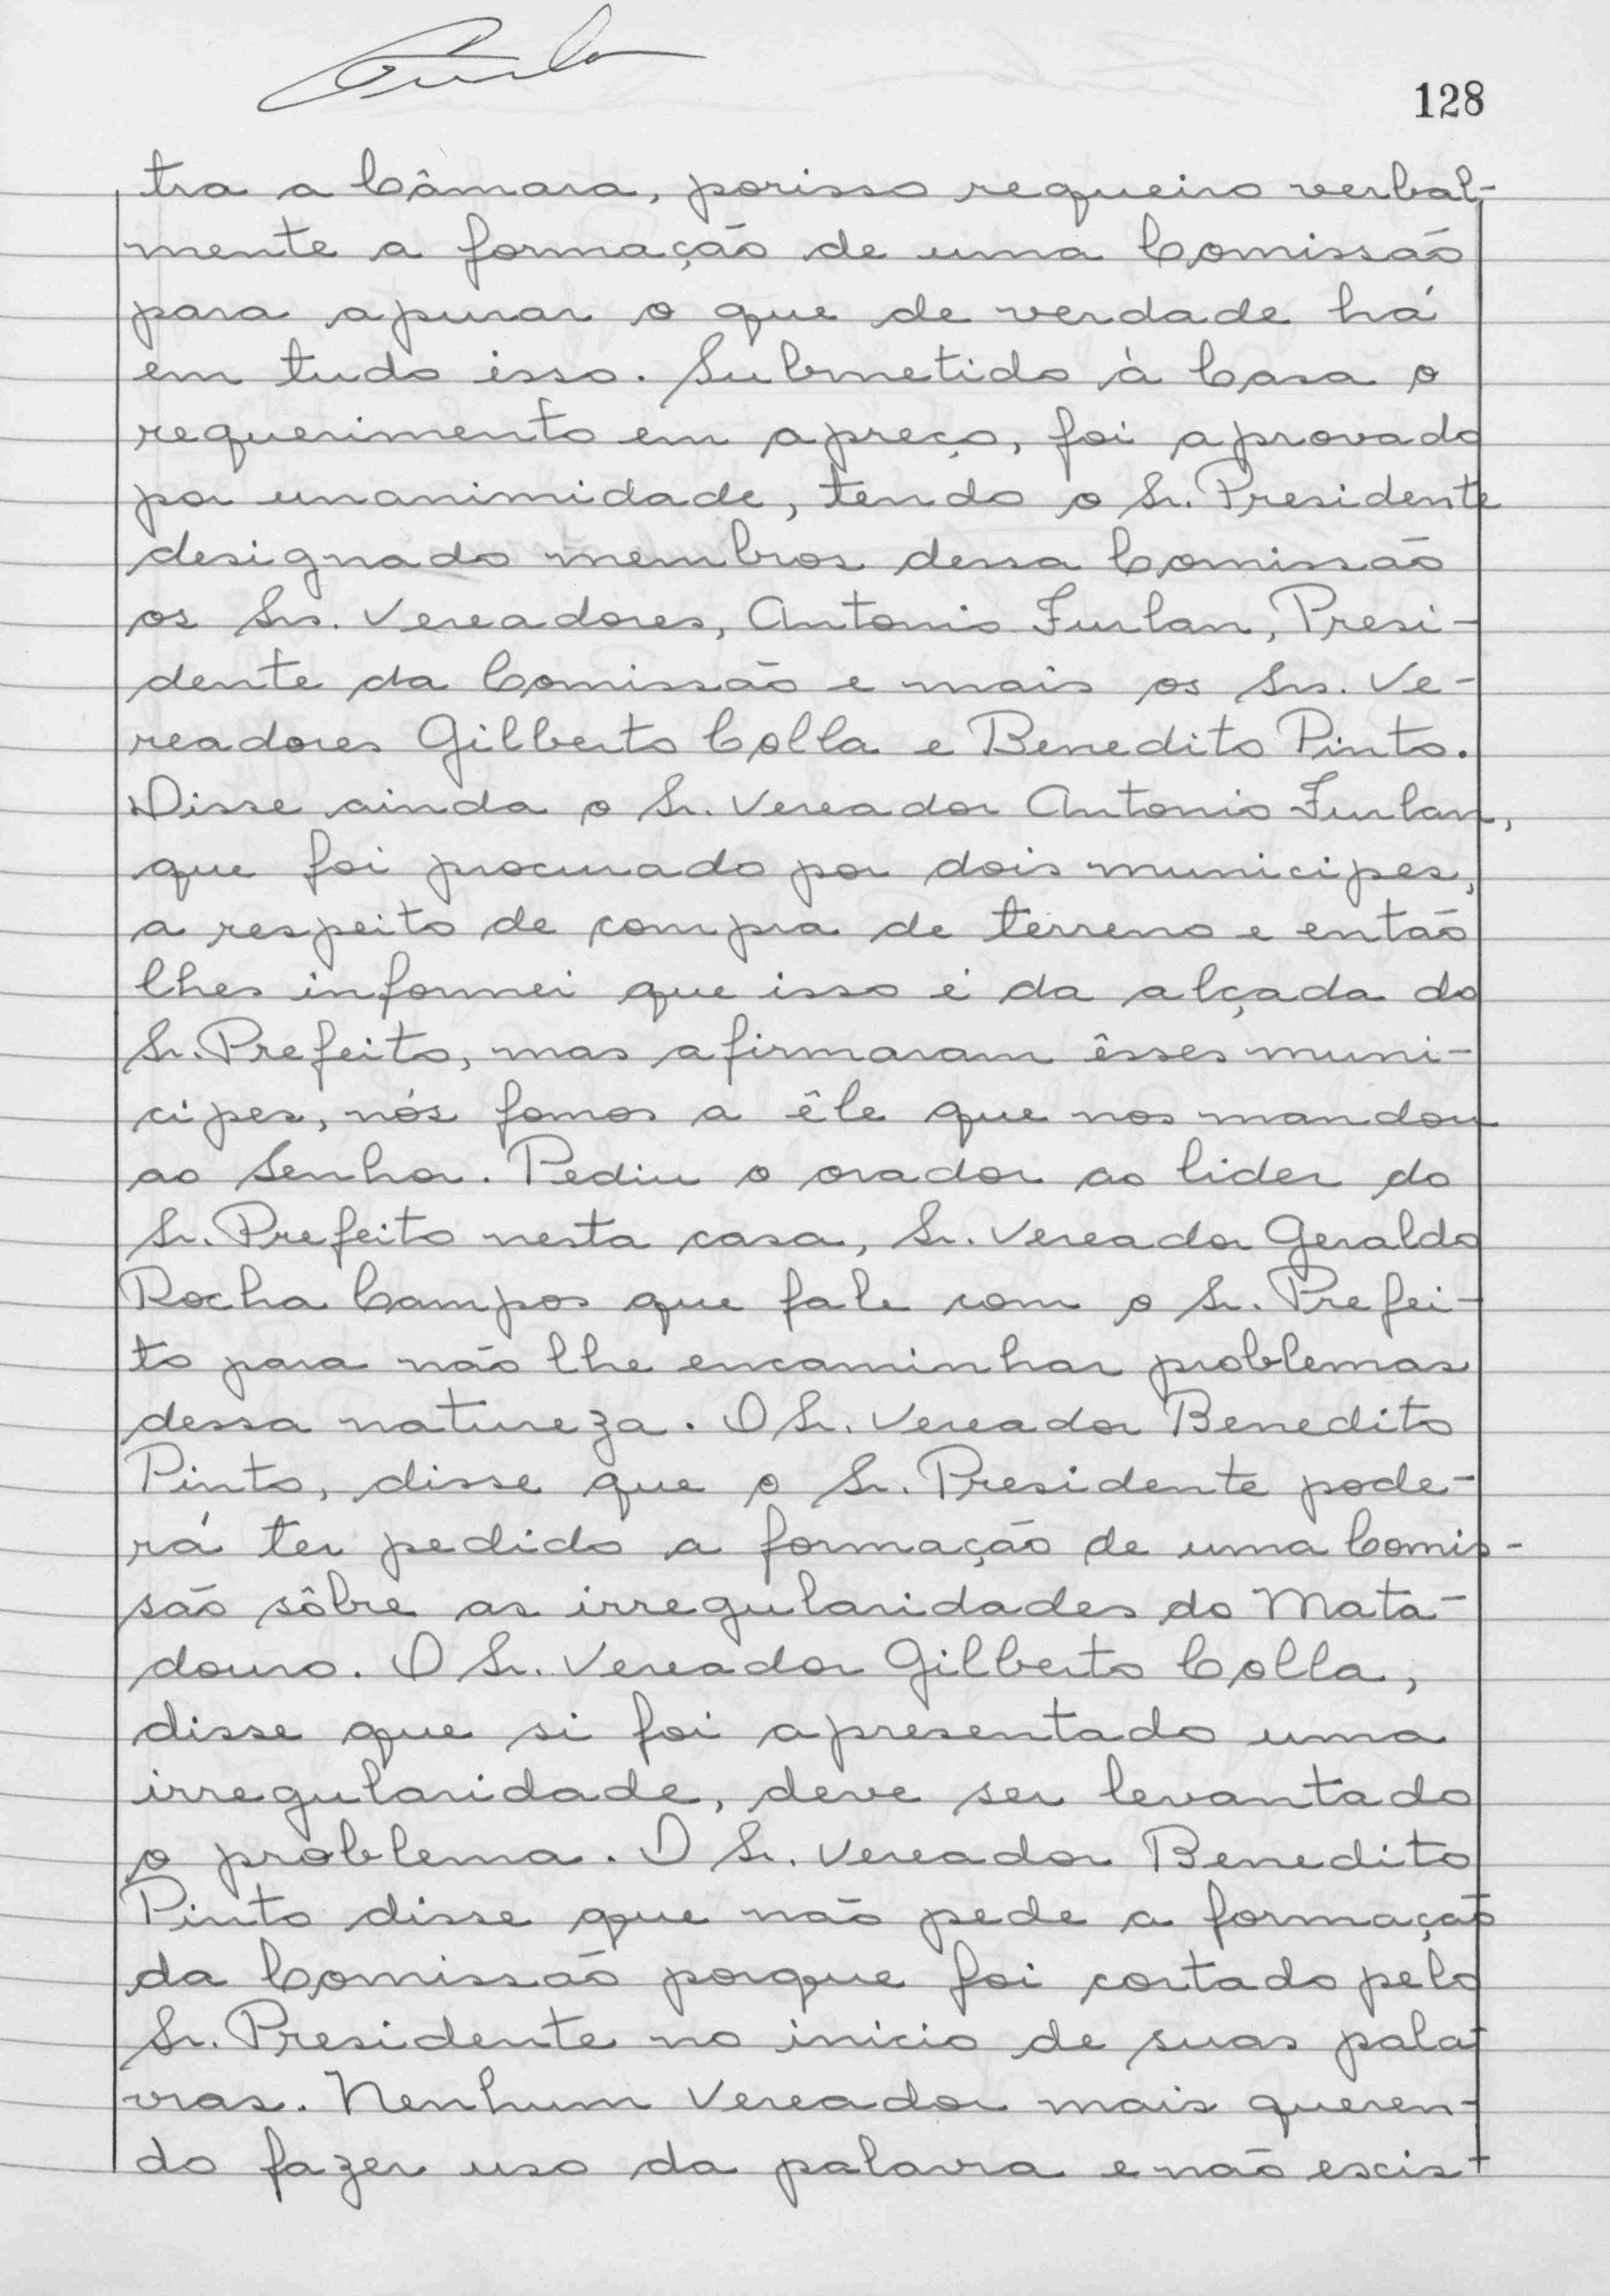 128
tra a Câmara, porisso requeiro verbal-
mente a formação de uma Comissão
para apurar o que de verdade há
em tudo isso. Submetido à Casa o
requerimento em apreço, foi aprovado
por unanimidade, tendo o Sr. Presidente
designado membros dessa Comissão
os Srs. Vereadores, Antonio Furlan, Presi-
dente da Comissão e mais os Srs. Ve-
readores Gilberto Colla e Benedito Pinto.
Disse ainda o Sr. Vereador Antonio Furlan,
que foi procurado por dois municipes,
a respeito de compra de terreno e então
lhes informei que isso é da alçada do
Sr. Prefeito, mas afirmaram êsses muni-
cipes, nós fomos a êle que nos mandou
ao Senhor. Pediu o orador ao lider do
Sr. Prefeito nesta casa, Sr. Vereador Geraldo
Rocha Campos que fale com o Sr. Prefei-
to para não lhe encaminhar problemas
dessa natureza. O Sr. Vereador Benedito
Pinto, disse que o Sr. Presidente pode-
rá ter pedido a formação de uma Comis-
são sôbre as irregularidades do Mata-
douro. O Sr. Vereador Gilberto Colla,
disse que si foi apresentado uma
irregularidade, deve ser levantado
o problema. O Sr. Vereador Benedito
Pinto disse que não pede a formação
da Comissão porque foi cortado pelo
Sr. Presidente no inicio de suas pala-
vras. Nenhum Vereador mais queren-
do fazer uso da palavra e não excis-